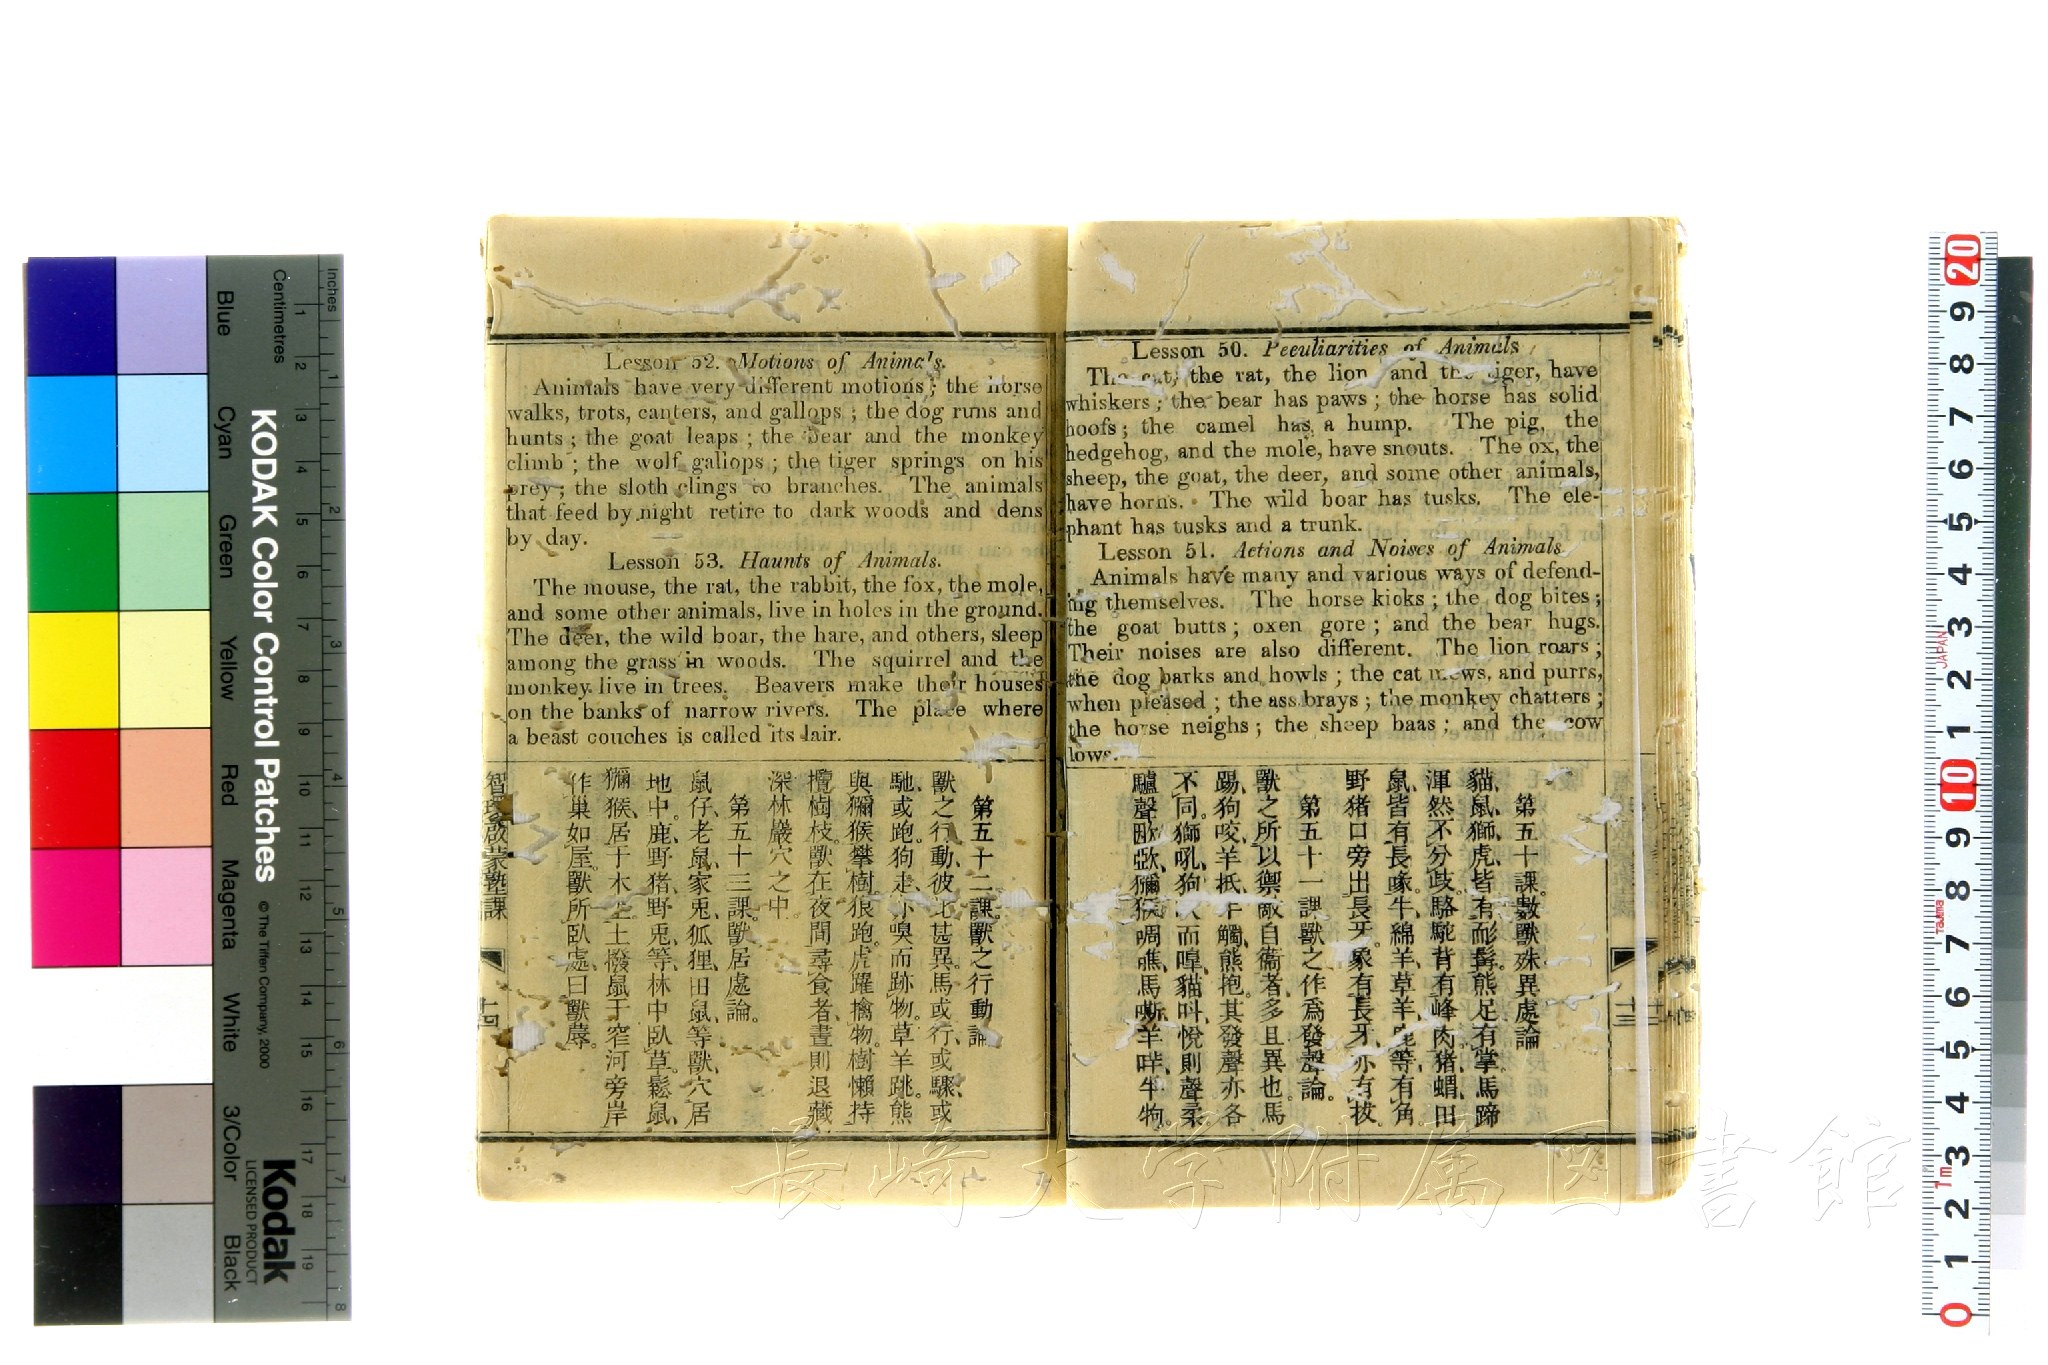 Lesson 50. Peculiarities of Animals
The cat, the rat, the lion and the tiger, have
whiskers; the bear has paws; the horse has solid
hoofs; the camel has a hump. The pig, the
hedgehog, and the mole, have snouts. The ox, the
sheep, the goat, the deer, and some other animals,
have horns. The wild boar has tusks. The ele-
phant has tusks and a trunk.
Lesson 51. Actions and Noises of Animals.
Animals have many and various ways of defend-
ing themselves. The horse kicks; the dog bites;
the goat butts; oxen gore; and the bear hugs.
Their noises are also different. The lion roars;
the dog barks and howls; the cat mews, and purrs,
when pleased; the ass brays; the monkey chatters;
the horse neighs; the sheep baas; and the cow
lows.
第五十課。數獸殊異處論
貓、鼠、獅、虎、皆有而髟髯。熊足有掌。馬蹄
渾然不分歧。駱駝背有峰肉。猪、蝟、田
鼠、皆有長喙。牛、綿羊、草羊、鹿等、有角
野猪口旁出長牙。象有長牙、亦有拔
第五十一課獸之作爲發聲論。
獸之所以禦敵自衞者、多且異也。馬
踢、狗咬、羊抵、牛觸、熊抱。其發聲亦各
不同。獅吼、狗 而嘷、貓叫、悅則聲柔
驢聲 獼猴啁噍、馬嘶、羊哶、牛牳。
十三
Lesson 52. Motions of Animals.
Animals have very different motions; the horse
walks, trots, canters, and gallops; the dog runs and
hunts; the goat leaps; the bear and the monkey
climb; the wolf gallops; the tiger springs on his
prey; the sloth clings to branches. The animals
that feed by night retire to dark woods and dens
by day.
Lesson 53. Haunts of Animals.
The mouse, the rat, the rabbit, the fox, the mole,
and some other animals, live in holes in the ground.
The deer, the wild boar, the hare, and others, sleep
among the grass in woods. The squirrel and the
monkey live in trees. Beavers make their houses
on the banks of narrow rivers. The place where
a beast couches is called its lair.
第五十二課。獸之行動論
獸之行動、彼此甚異。馬或行、或驟、或
馳、或跑。狗走、亦嗅而跡物。草羊跳。熊
與獼猴攀樹。狼跑。虎躍擒物。樹懶持
攬樹枝。獸在夜間尋食者、晝則退藏
深林巖穴之中。
第五十三課。獸居處論。
鼠仔、老鼠、家兎、狐狸、田鼠、等獸、穴居
地中。鹿、野猪、野兎、等、林中臥草。鬆鼠、
獼猴、居于木上。土撥鼠于窄河旁岸
作巢如屋。獸所臥處、曰獸蓐。
智環啟蒙塾課
十四
長崎大学附属図書館
KODAK Color Control Patches
© The Tiffen Company, 2000
Kodak
LICENSED PRODUCT
Inches
Centimetres
Blue
Cyan
Green
Yellow
Red
Magenta
White
3/Color
Black
1 2 3 4 5 6 7 8 9 10 11 12 13 14 15 16 17 18 19
1 2 3 4 5 6 7 8
20 9 8 7 6 5 4 3 2 1 10 9 8 7 6 5 4 3 2 1 0
JAPAN
Tajima
1m